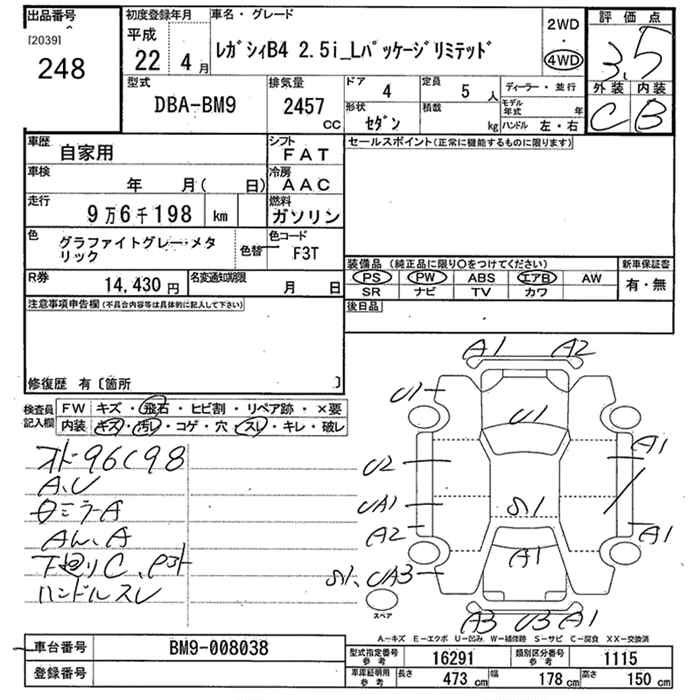 出品番号
[20391
248
初度登録年月
平成
22 4月
車名・グレード
ﾚｶﾞｼｨB4 2.5i_Lﾊﾟｯｹｰｼﾞﾘﾐﾃｯﾄﾞ
2WD
・
4WD
評価点
3.5
外装 内装
C B
型式
DBA-BM9
排気量
2457
CC
ドア
4
定員
5 人
形状
ｾﾀﾞﾝ
積載
kg
ディーラー・並行
モデル
年式 年
ハンドル 左・右
車歴
自家用
シフト
FAT
車検
年 月( 日)
冷房
AAC
走行
9万6千198 km
燃料
ガソリン
色
グラファイトグレー・メタ
リック
色替
色コード
F3T
R券
14,430 円
名変通知期限
月 日
セールスポイント(正常に機能するものに限ります)
装備品 (純正品に限り〇をつけてください)
PS PW ABS エアB AW
SR ナビ TV カワ
新車保証書
有・無
後日品
注意事項申告欄(不具合内容等は具体的に記入して下さい)
修復歴 有〔箇所 〕
検査員
記入欄
FW キズ・飛石・ヒビ割・リペア跡・×要
内装 キズ・汚レ・コゲ・穴・スレ・キレ・破レ
96198
A,U
下廻りC、
ハンドルスレ
A1 A2
U1
U1
U2
A1
UA1
A2
A1
S1
A1
S1、UA3
A3 U3 A1
スペア
A－キズ E－エクボ U－凹み W－補修跡 S－サビ C－腐食 XX－交換済
車台番号
BM9-008038
登録番号
型式指定番号
参考
16291
類別区分番号
参考
1115
車庫証明用
参考
長さ 473 cm 幅 178 cm 高さ 150 cm